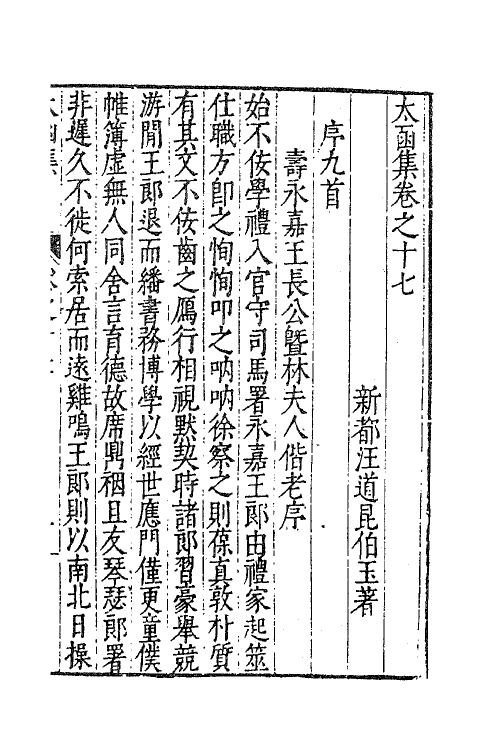 太函集卷之十七
新都汪道昆伯玉著
序九首
壽永嘉王長公暨林夫人偕老序
始不佞學禮入官守司馬署永嘉王郎由禮家起筮
仕職方卽之恂恂叩之吶吶徐察之則葆真敦朴質
有其文不佞齒之鴈行相視默契時諸郎習豪舉競
游閒王郎退而繙書務博學以經世應門僅更童僕
帷簿虛無人同舍言育德故席鼎裀且友琴瑟郎署
非遲久不徙何索居而遠雞鳴王郎則以南北日操